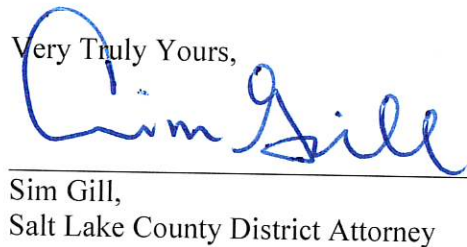 Very Truly Yours,
Sim Gill
Sim Gill,
Salt Lake County District Attorney